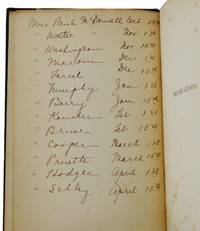 Mrs Paul McDowell Oct 15th
Walter " Nov 1st
Washington Nov 15th
Manson Dec 1st
Jarret Dec 15th
Murphy Jan 1st
Berry Jan 15th
Feb 1st
Bruce Feb 15th
Cooper March 1st
Pruette March 15th
Hodges April 1st
Schley April 15th